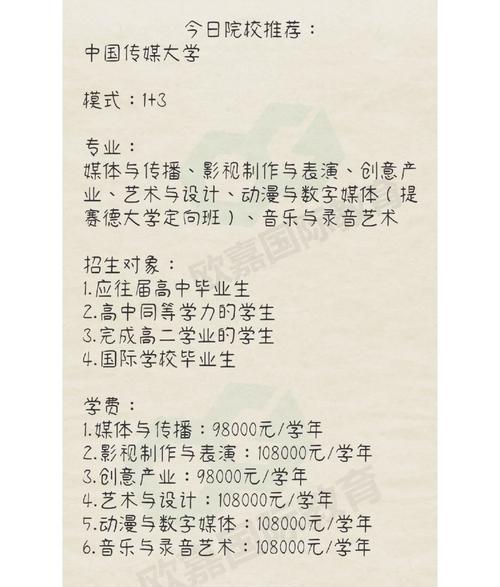 今日院校推荐：
中国传媒大学
模式：1+3
专业：
媒体与传播、影视制作与表演、创意产
业、艺术与设计、动漫与数字媒体（提
赛德大学定向班）、音乐与录音艺术
招生对象：
1.应往届高中毕业生
2.高中同等学力的学生
3.完成高二学业的学生
4.国际学校毕业生
学费：
1.媒体与传播：98000元/学年
2.影视制作与表演：108000元/学年
3.创意产业：98000元/学年
4.艺术与设计：108000元/学年
5.动漫与数字媒体：108000元/学年
6.音乐与录音艺术：108000元/学年
欧嘉国际教育
欧嘉国际教育